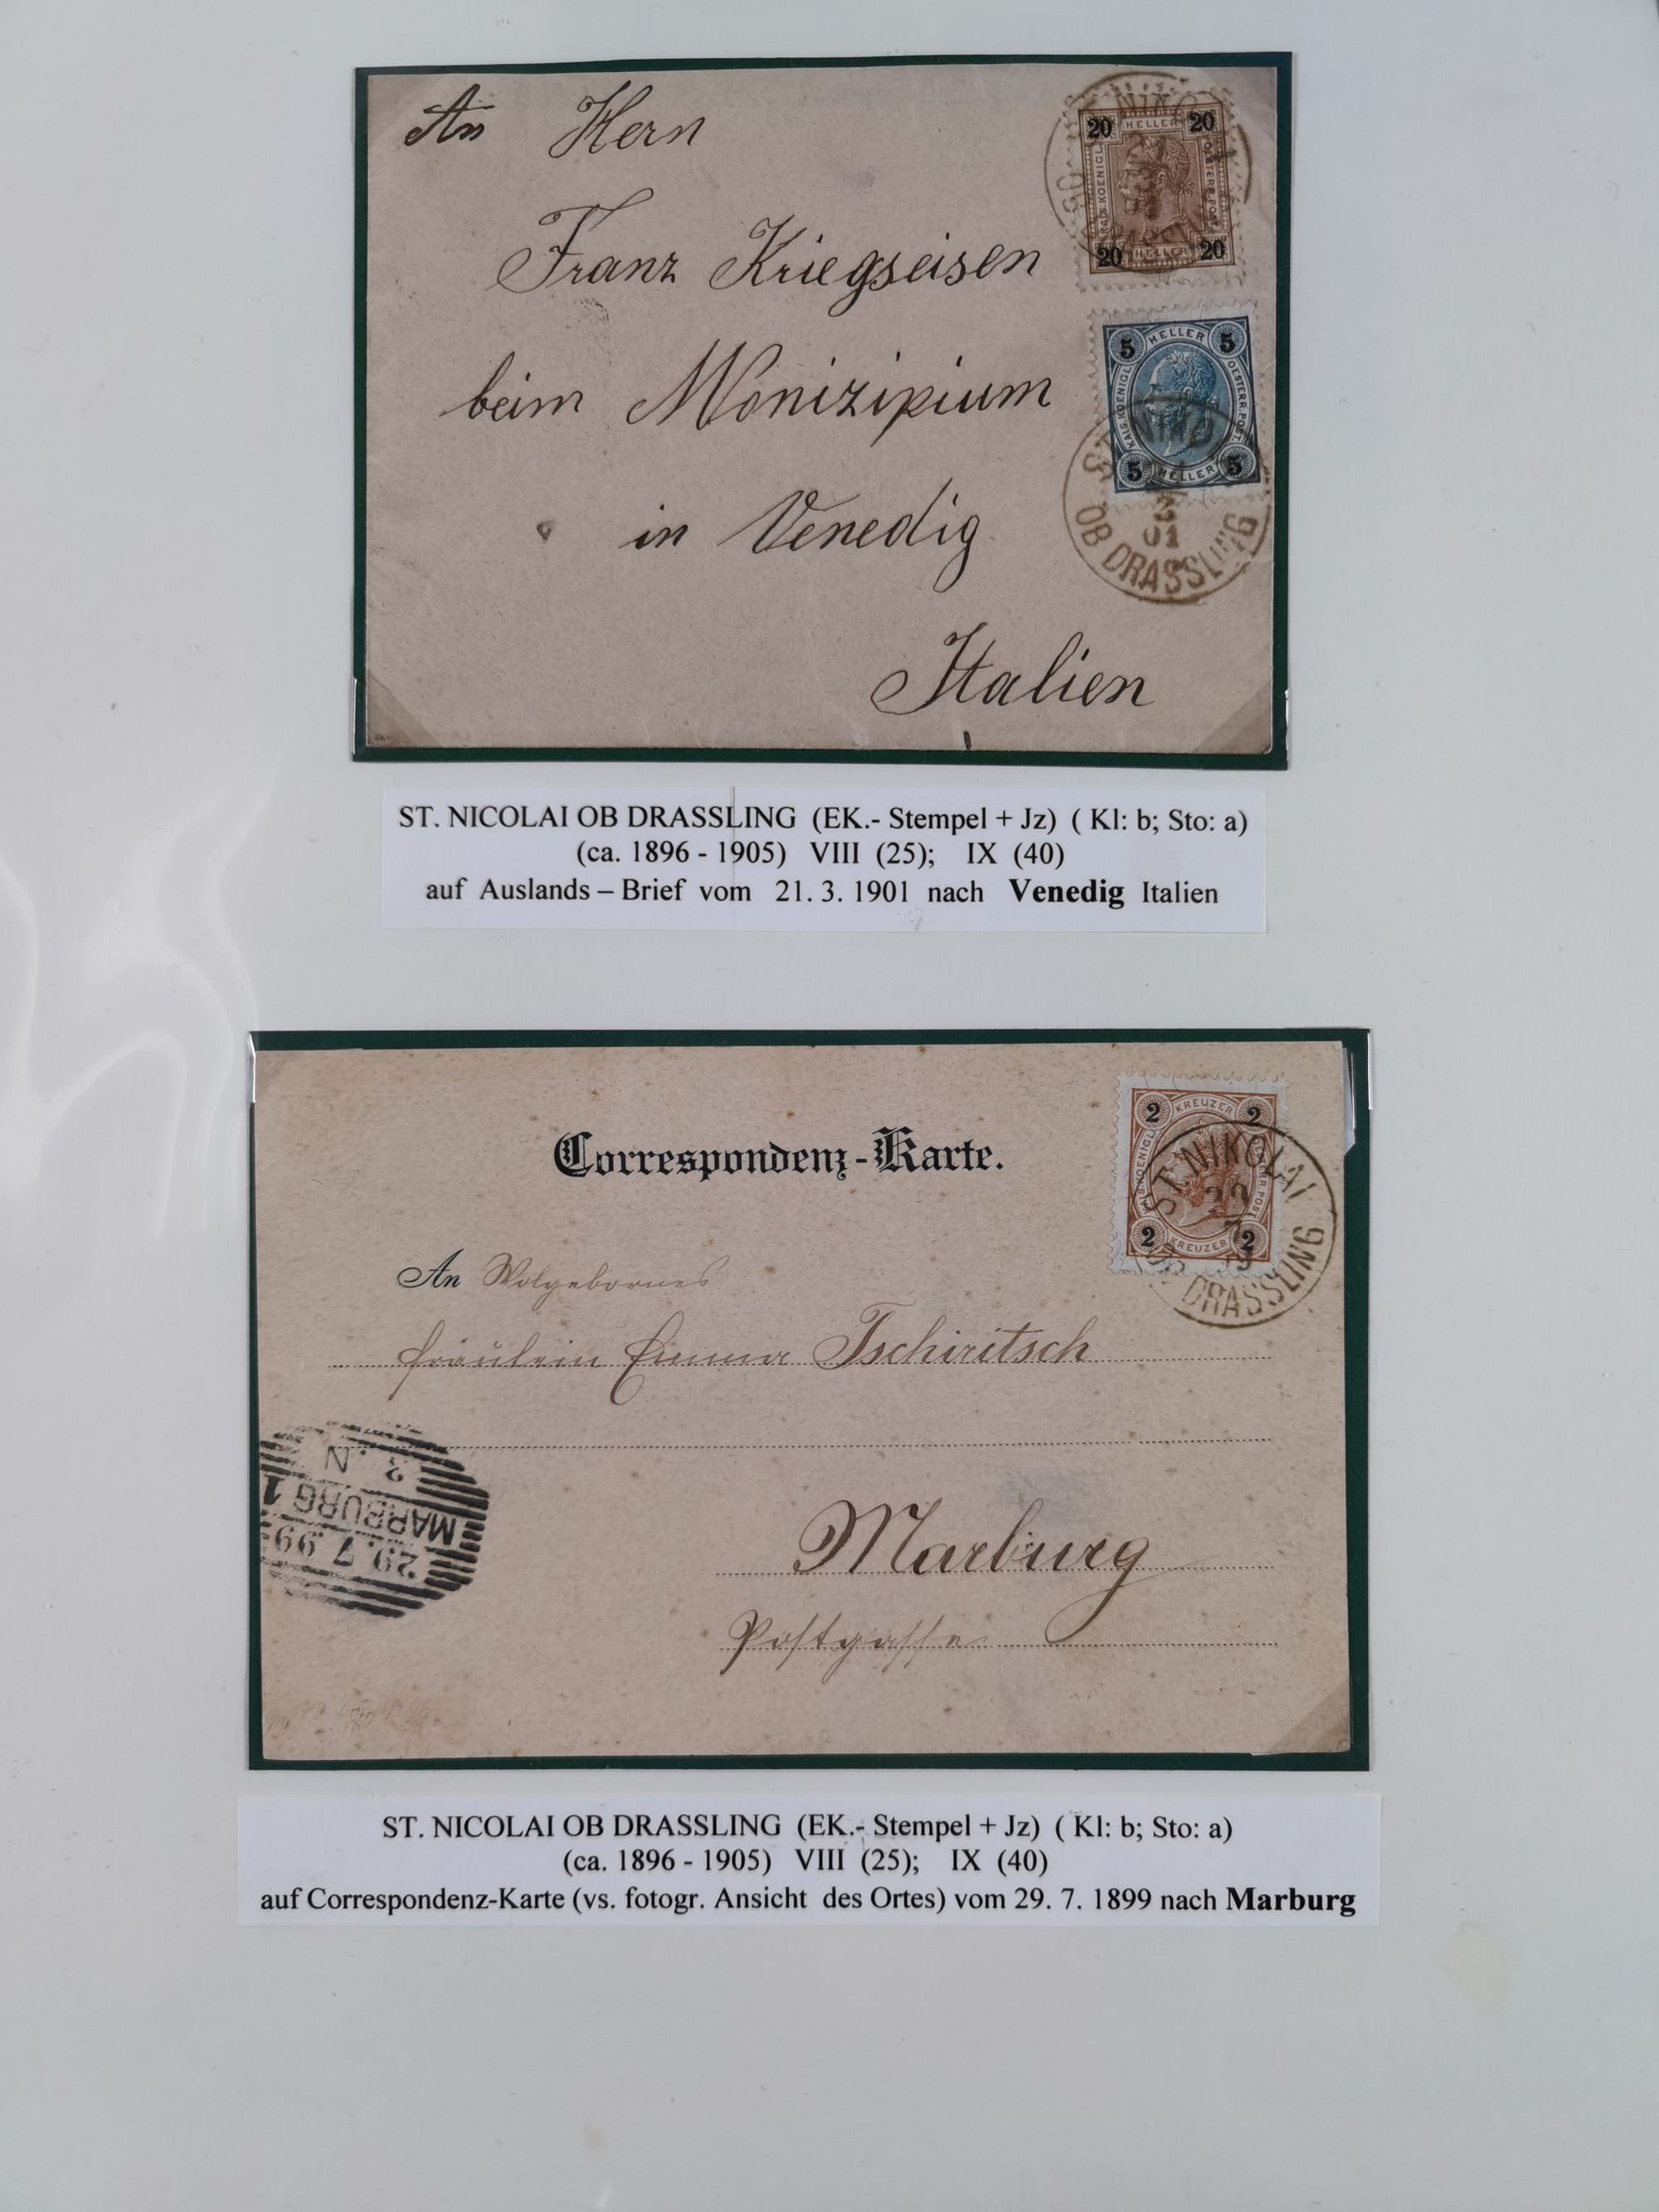 An Hern
Franz Kriegseisen
beim Monizipium
in Venedig
Italien
20 HELLER 20
KAIS. KOENIGL.
OESTERR. POST.
20 HELLER 20
5 HELLER 5
KAIS. KOENIGL.
OESTERR. POST.
5 HELLER 5
3
01
OB DRASSLING
ST. NICOLAI OB DRASSLING (EK.- Stempel + Jz) ( Kl: b; Sto: a)
(ca. 1896 - 1905) VIII (25); IX (40)
auf Auslands – Brief vom 21. 3. 1901 nach Venedig Italien
Correspondenz-Karte.
2 KREUZER 2
2 KREUZER 2
ST. NIKOLAI
29
OB DRASSLING
An Wolgebornes
Fräulein Emma Tschiritsch
Marburg
Postgasse
3. N
MARBURG 1
29. 7. 99
ST. NICOLAI OB DRASSLING (EK.- Stempel + Jz) ( Kl: b; Sto: a)
(ca. 1896 - 1905) VIII (25); IX (40)
auf Correspondenz-Karte (vs. fotogr. Ansicht des Ortes) vom 29. 7. 1899 nach Marburg